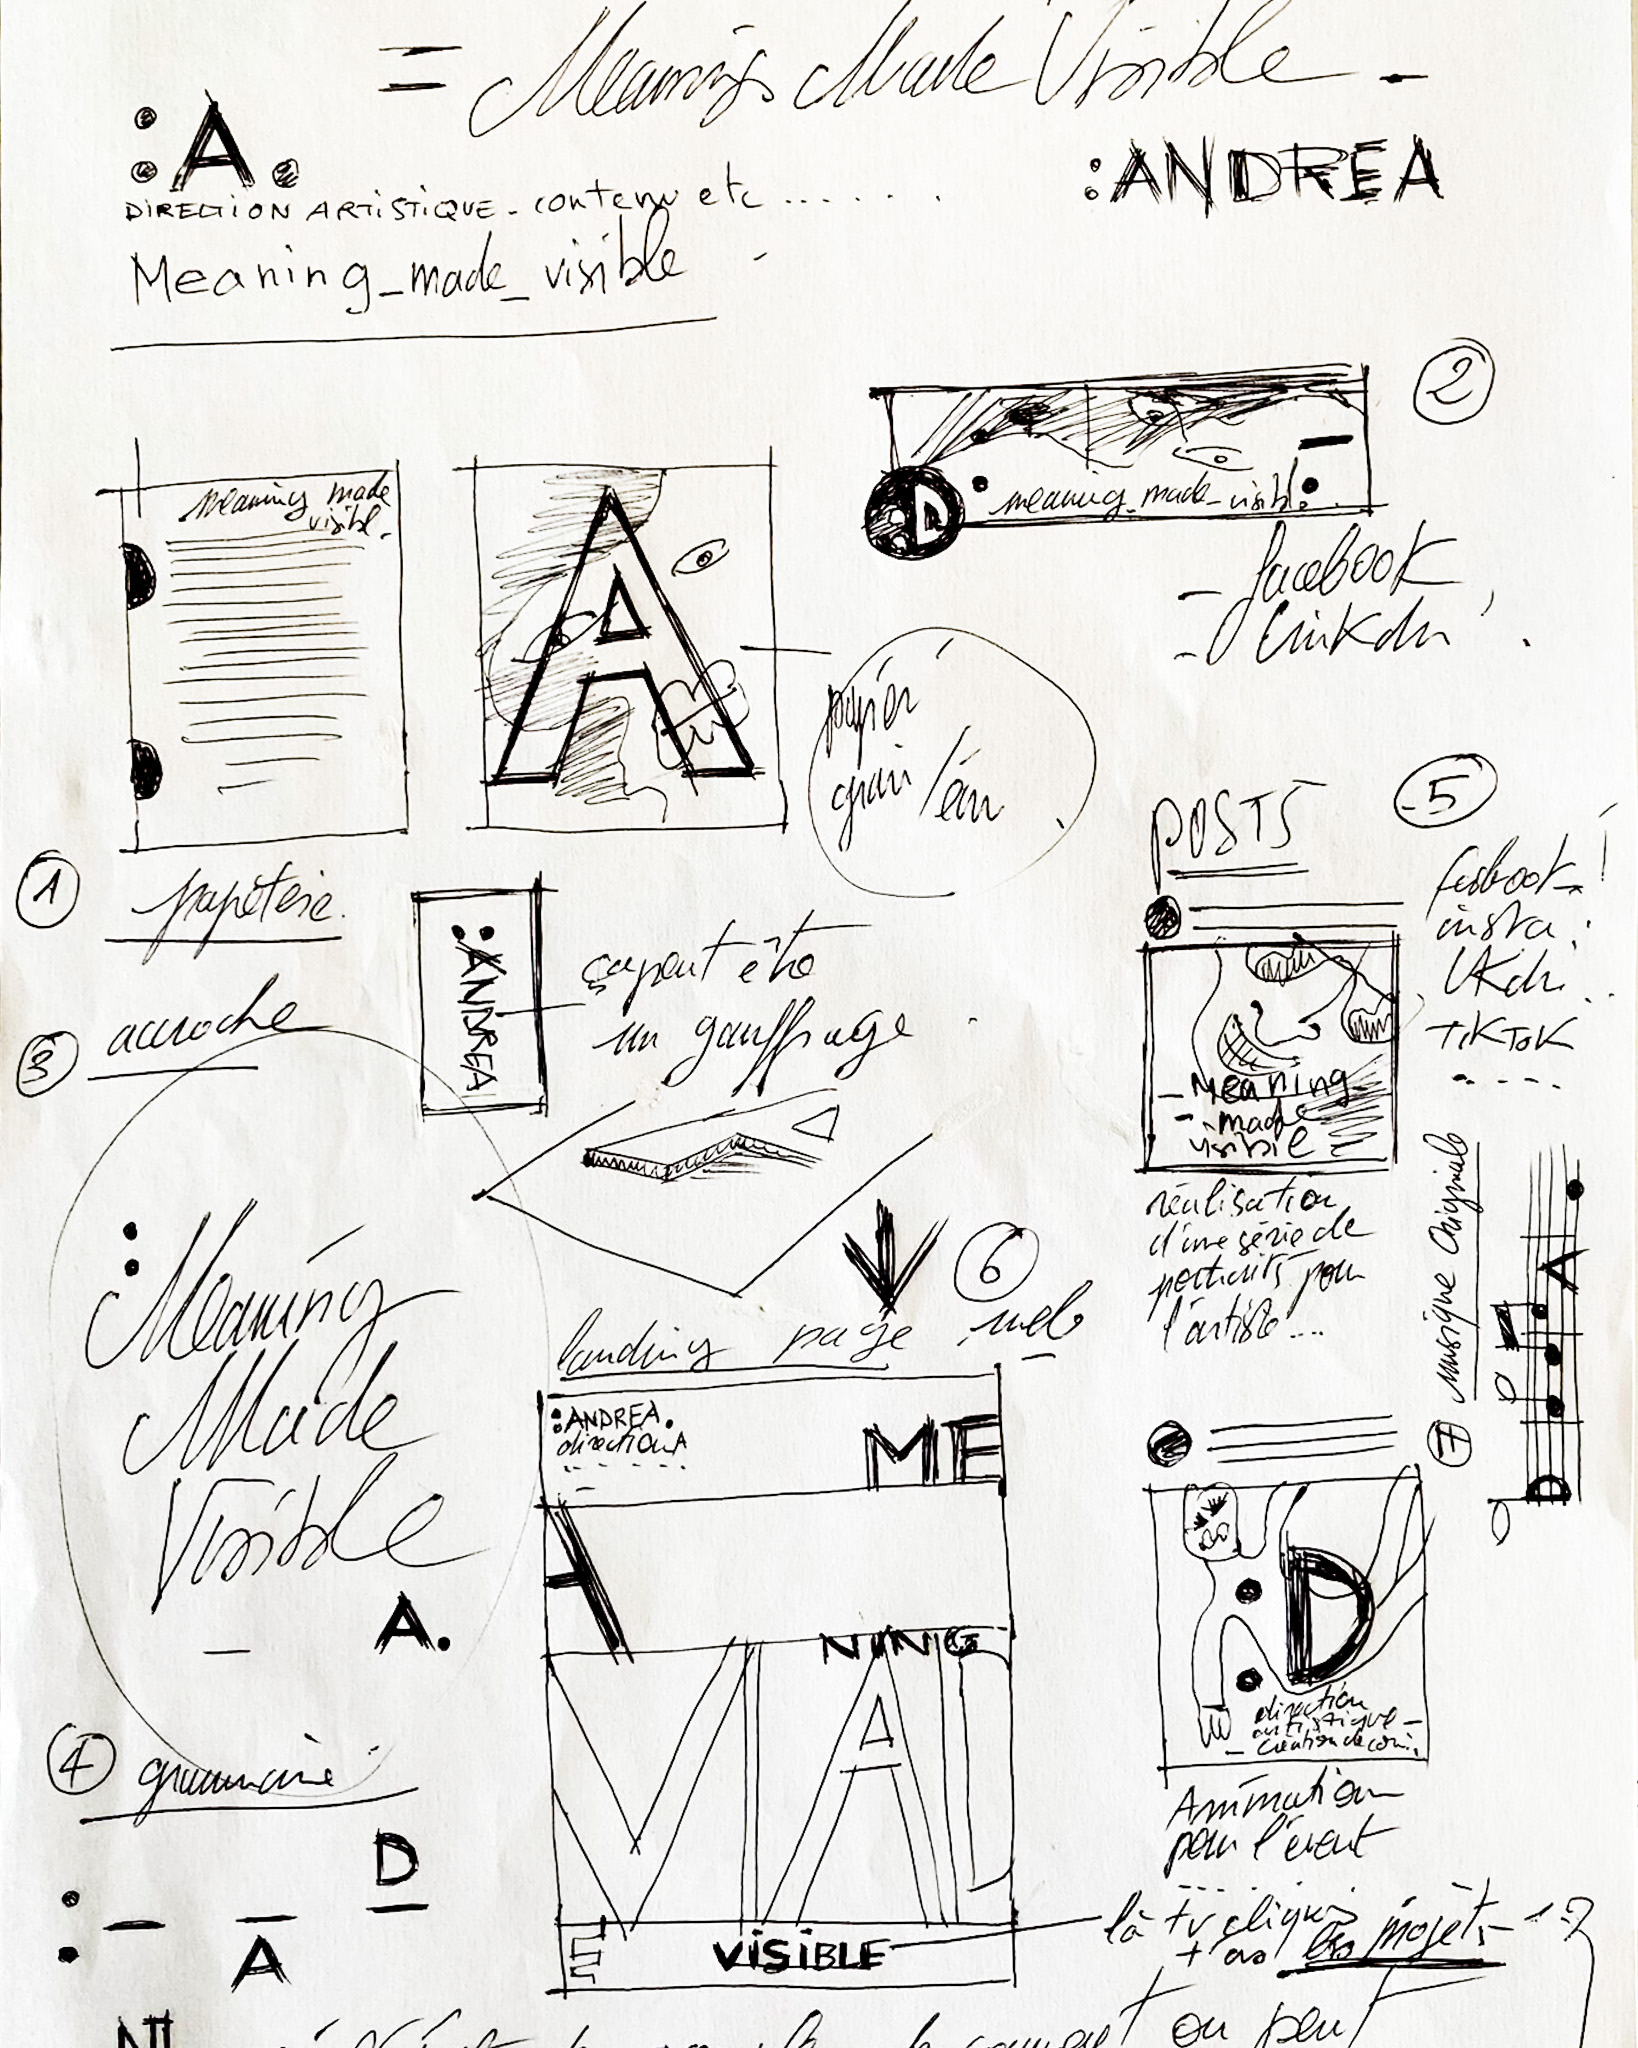 = Meaning Made Visible -
:A.
DIRECTION ARTISTIQUE - contenu etc ........
:ANDREA
Meaning_made_visible -
2
D
meaning_made_visible.
- facebook
- Linkdin
meaning made
visible.
A
papier
grain
1
papèterie.
:ANDREA
ça peut être
un gauffrage.
3
accroche
:Meaning
Made
Visible
_ A.
POSTS
5
insta.
TIKTOK
- Meaning
- made
visible
réalisation
d'une série de
portraits pour
l'artiste...
6
landing page web
:ANDREA.
direction A
ME
A
NING
MAD
E
VISIBLE
7
musique originale
A
N
D
:D
direction
artistique -
- création de
Animation
pour l'event
là tu cliques
+ as les projets - 
4
grammaire
: _ _ D
A
N
on peut